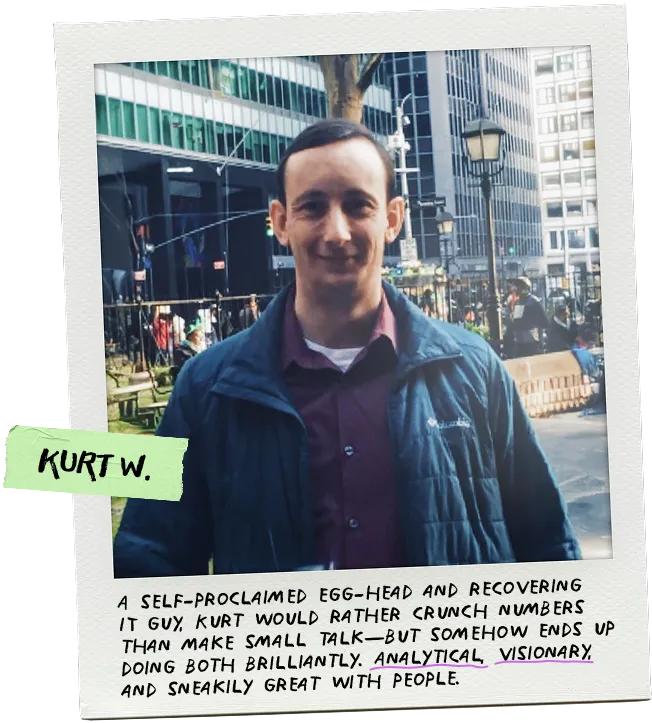 Columbia
KURT W.
A SELF-PROCLAIMED EGG-HEAD AND RECOVERING
IT GUY, KURT WOULD RATHER CRUNCH NUMBERS
THAN MAKE SMALL TALK—BUT SOMEHOW ENDS UP
DOING BOTH BRILLIANTLY. ANALYTICAL, VISIONARY,
AND SNEAKILY GREAT WITH PEOPLE.